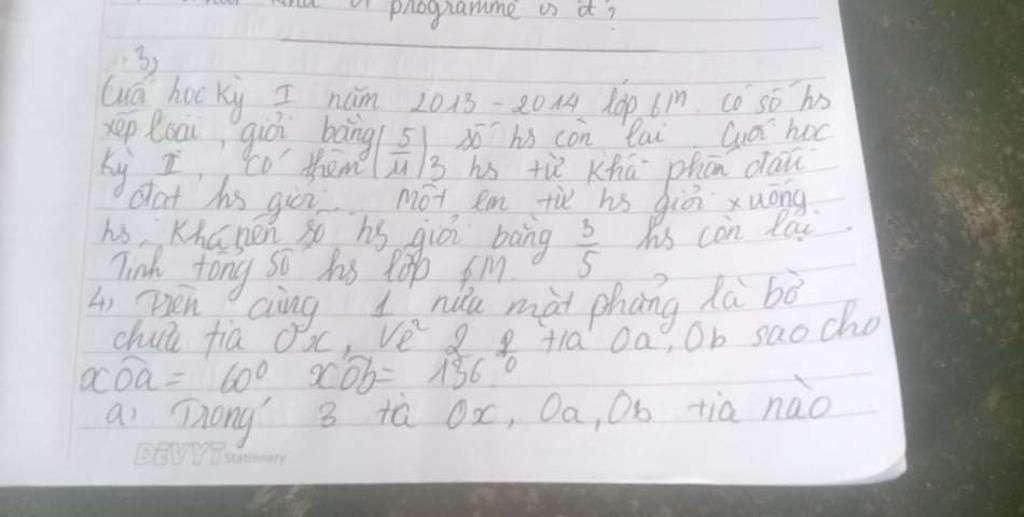 programme is it?
3,
Cuối học kỳ I năm 2013 - 2014 lớp 6M có số hs
xếp loại, giỏi bằng 5/11 số hs còn lại. Cuối học
kỳ II, có thêm 3 hs từ khá phấn đấu
đạt hs giỏi. Một em từ hs giỏi xuống
hs, khá nên số hs giỏi bằng 3/5 hs còn lại.
Tính tổng số hs lớp 6M
4, Trên cùng 1 nửa mặt phẳng là bờ
chứa tia Ox, vẽ 2 2 tia Oa, Ob sao cho
xÔa = 60° xÔb = 136°
a, Trong 3 tà Ox, Oa, Ob tia nào
DEVYT Stationery